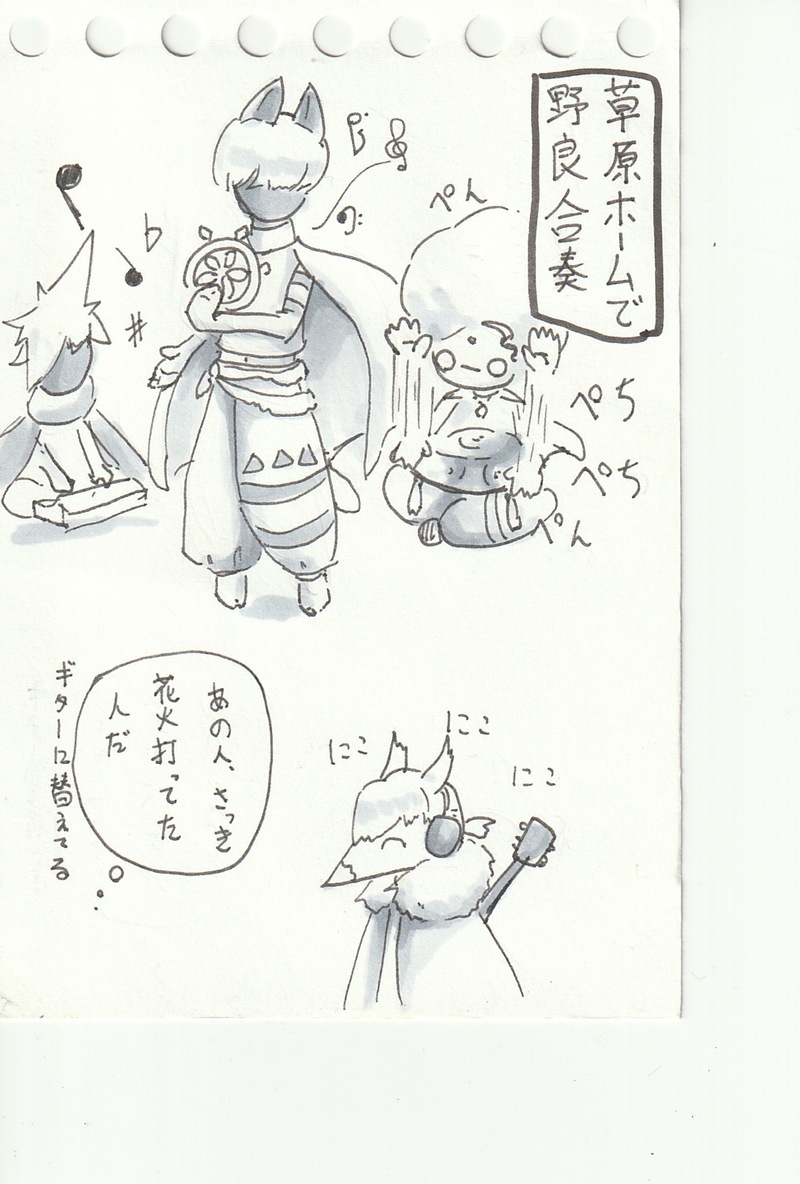 草原ホームで
野良合奏
ぺん
ぺち
ぺち
ぺん
にこ
にこ
にこ
あの人、さっき
花火打ってた
人だ
ギターに替えてる